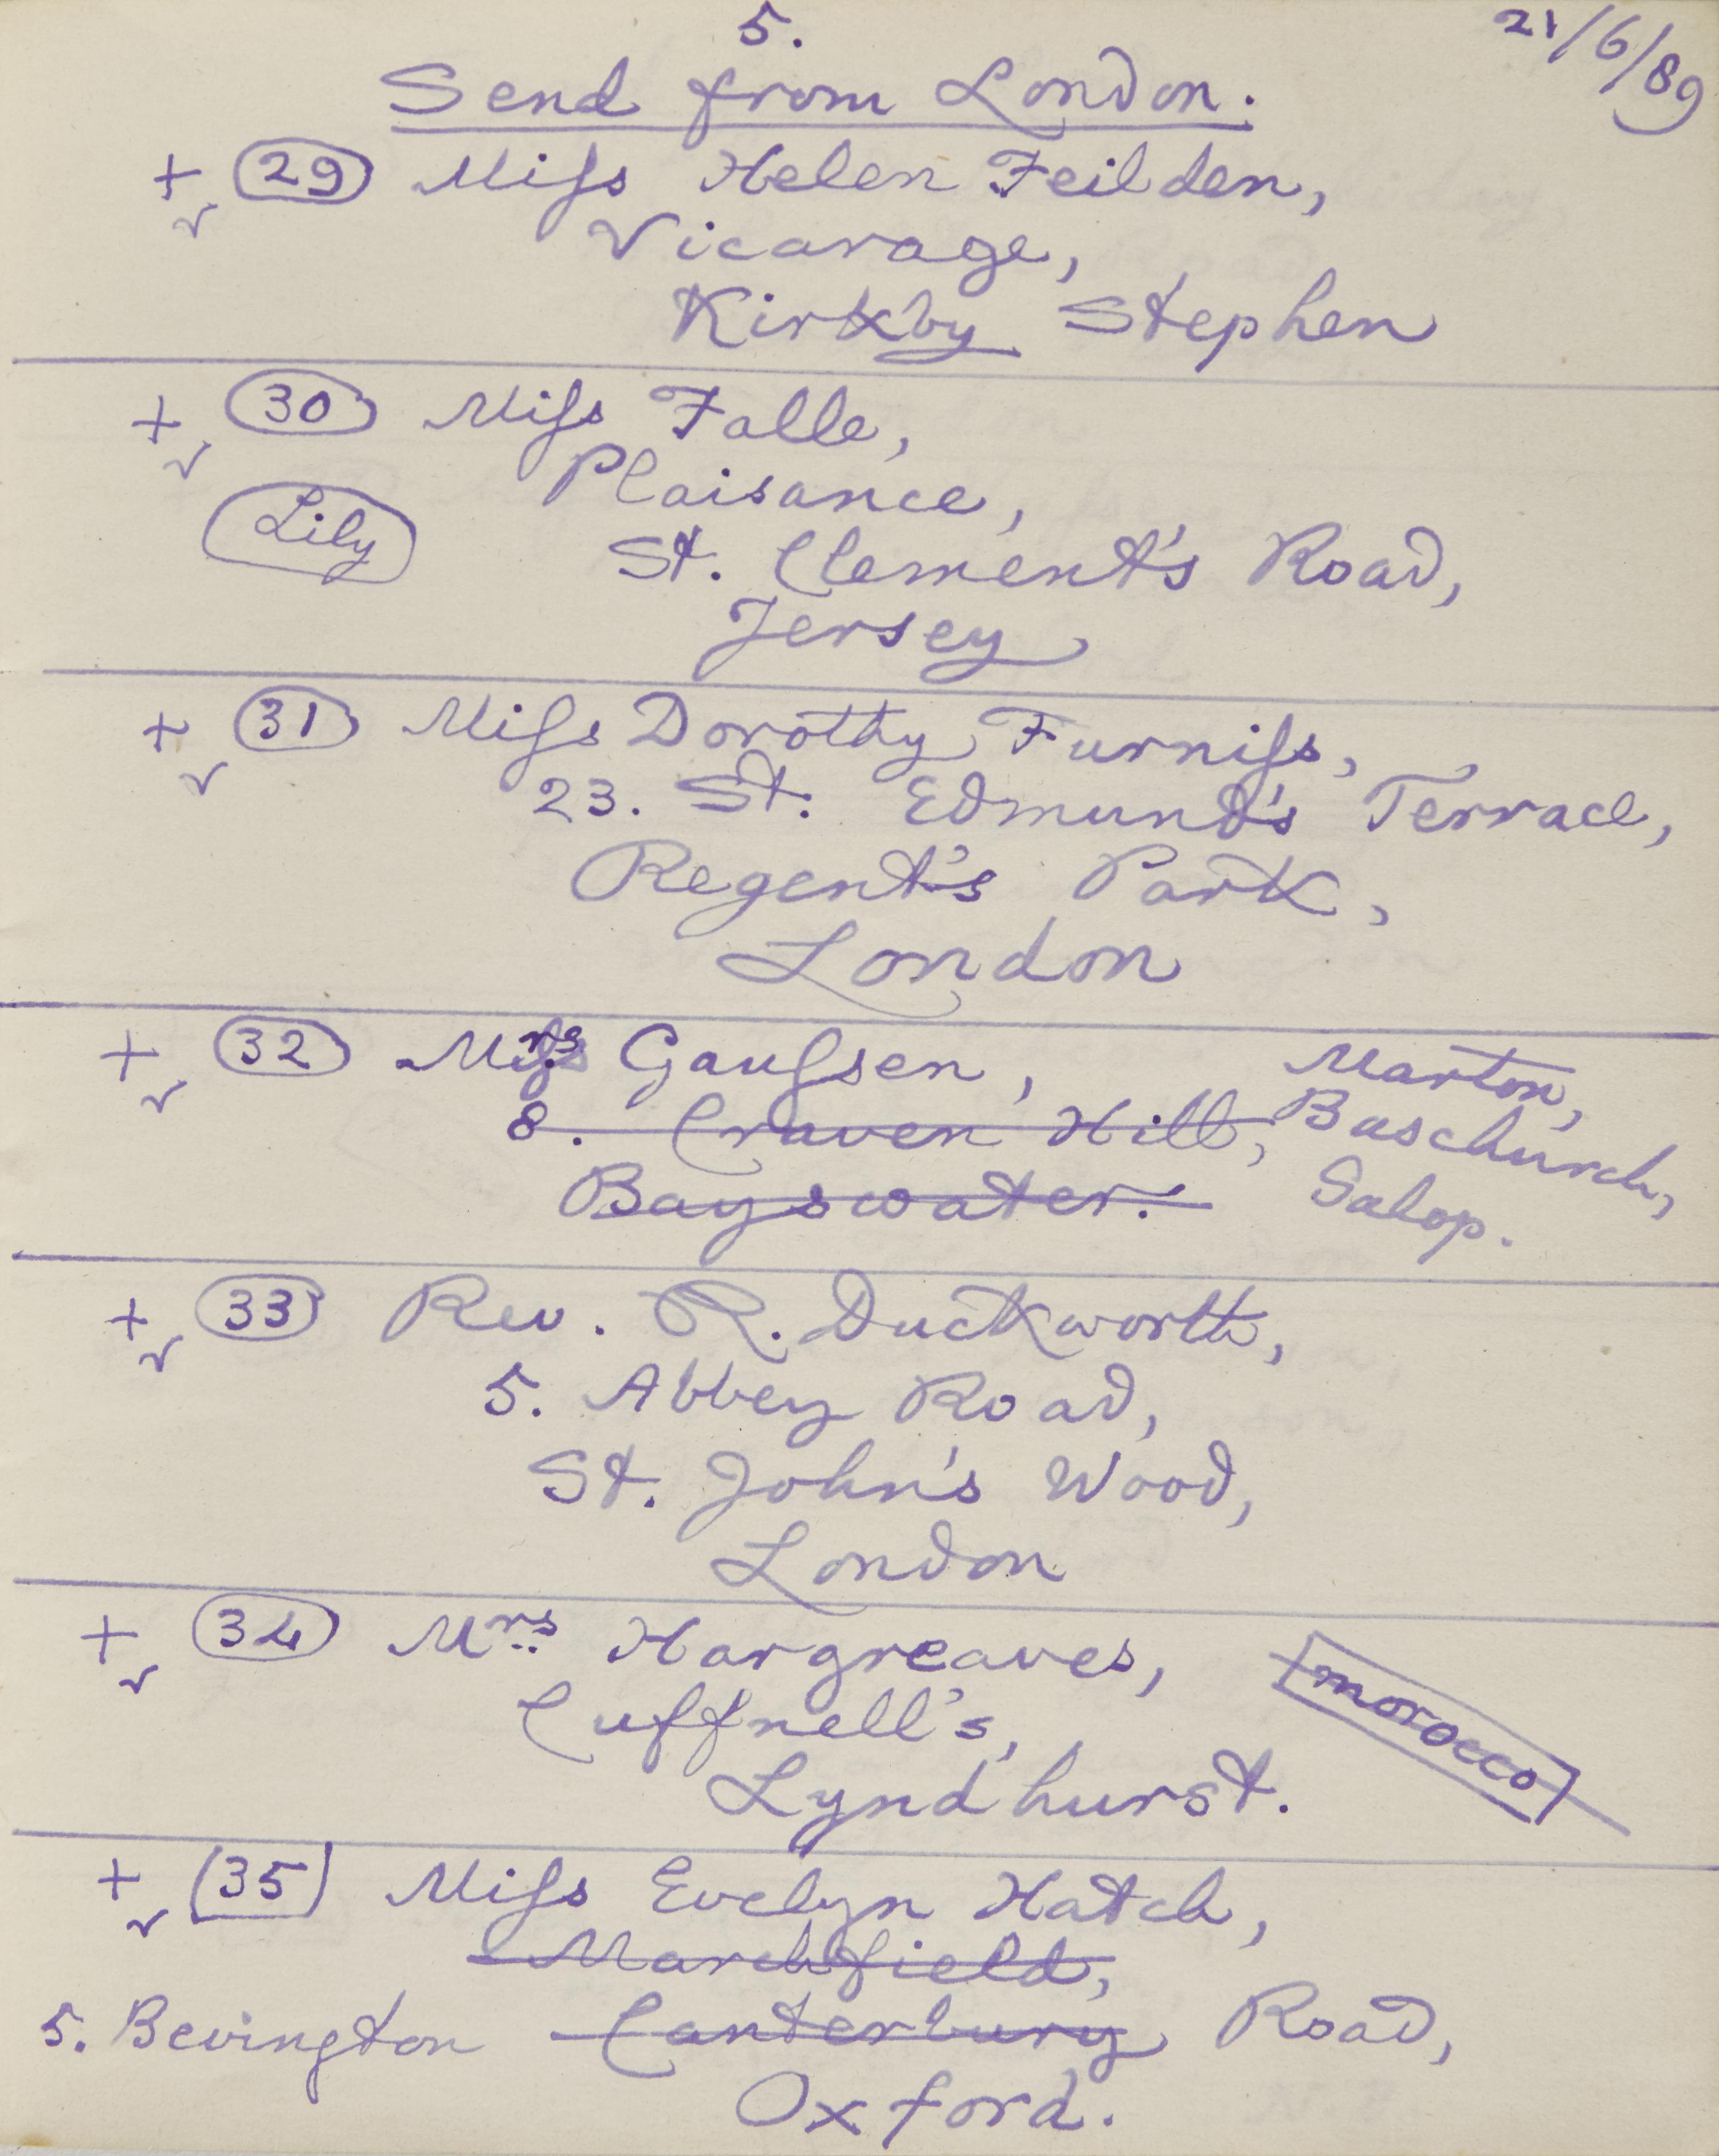 5.
21/6/89
Send from London.
+ 29 Miſs Helen Feilden,
✓ Vicarage,
Kirkby Stephen
+ 30 Miſs Falle,
✓ Plaisance,
Lily St. Clement's Road,
Jersey
+ 31 Miſs Dorothy Furniſs,
✓ 23. St. Edmund's Terrace,
Regent's Park,
London
+ 32 Mrs Gauſsen, Marton,
✓ 8. Craven Hill, Baschurch,
Bayswater. Salop.
+ 33 Rev. R. Duckworth,
✓ 5. Abbey Road,
St. John's Wood,
London
+ 34 Mrs Hargreaves,
✓ Cuffnell's, morocco
Lyndhurst.
+ 35 Miſs Evelyn Hatch,
✓ Marchfield,
5. Bevington Canterbury Road,
Oxford.